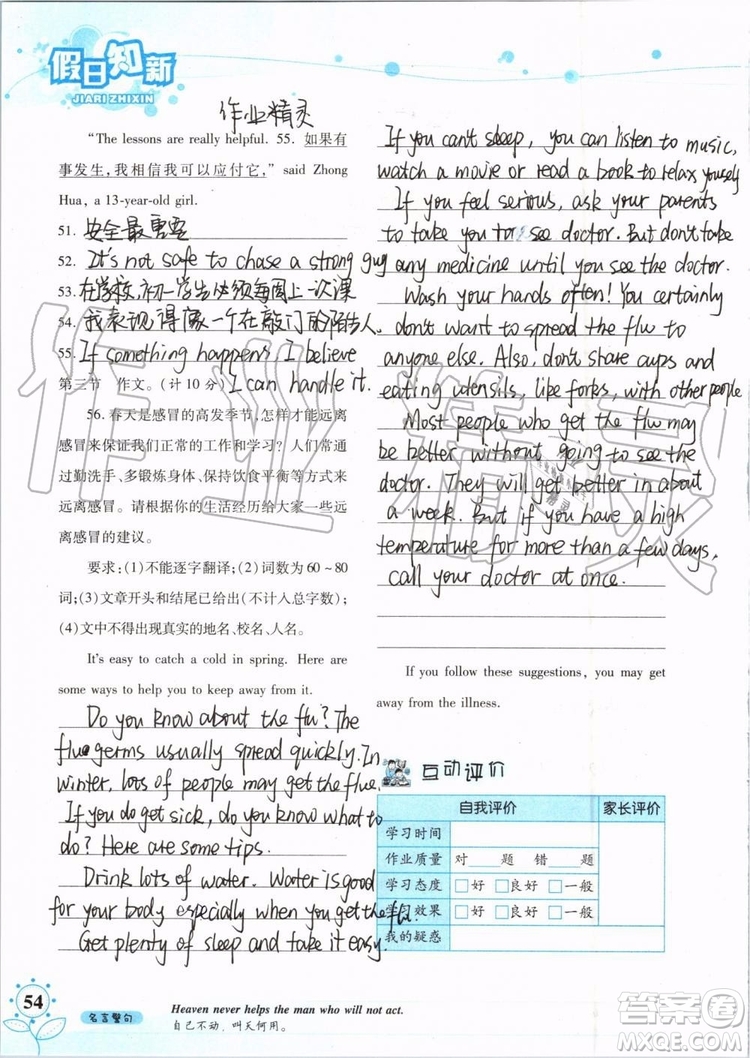 假日知新
JIARI ZHIXIN
作业精灵
"The lessons are really helpful. 55. 如果有
事发生,我相信我可以应付它," said Zhong
Hua, a 13-year-old girl.
51. 安全最重要
52. It's not safe to chase a strong guy
53. 在学校,初一学生必须每周上一次课
54. 我表现得像一个在敲门的陌生人.
55. If something happens, I believe
I can handle it.
第三节 作文。(计10分)
56. 春天是感冒的高发季节,怎样才能远离
感冒来保证我们正常的工作和学习？人们常通
过勤洗手、多锻炼身体、保持饮食平衡等方式来
远离感冒。请根据你的生活经历给大家一些远
离感冒的建议。
要求:(1)不能逐字翻译;(2)词数为60~80
词;(3)文章开头和结尾已给出(不计入总字数);
(4)文中不得出现真实的地名、校名、人名。
It's easy to catch a cold in spring. Here are
some ways to help you to keep away from it.
Do you know about the flu? The
flue germs usually spread quickly. In
winter, lots of people may get the flue.
If you do get sick, do you know what to
do? Here are some tips.
Drink lots of water. Water is good
for your body especially when you get the flu.
Get plenty of sleep and take it easy.
If you can't sleep, you can listen to music,
watch a movie or read a book to relax youself
If you feel serious, ask your parents
to take you to see doctor. But don't take
any medicine until you see the doctor.
Wash your hands often! You certainly
don't want to spread the flu to
anyone else. Also, don't share cups and
eating utensils, like forks, with other people
Most people who get the flu may
be better without going to see the
doctor. They will get better in about
a week. But if you have a high
temperature for more than a few days,
call your doctor at once.
If you follow these suggestions, you may get
away from the illness.
互动评价
自我评价 家长评价
学习时间
作业质量 对 题 错 题
学习态度 □好 □良好 □一般
学习效果 □好 □良好 □一般
我的疑惑
54
名言警句
Heaven never helps the man who will not act.
自己不动,叫天何用。
作业精灵
答案圈
MXQE.COM